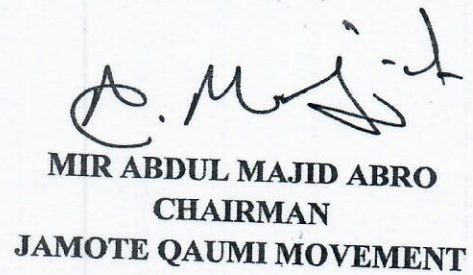 A. Majid
MIR ABDUL MAJID ABRO
CHAIRMAN
JAMOTE QAUMI MOVEMENT